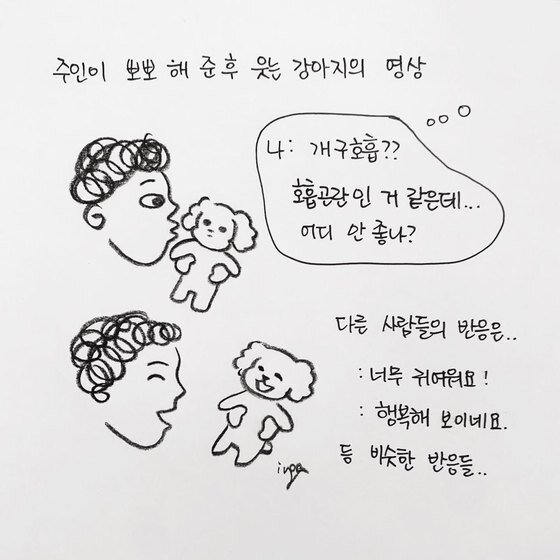 주인이 뽀뽀 해 준 후 웃는 강아지의 영상
나: 개구호흡??
호흡곤란인 거 같은데...
어디 안 좋나?
다른 사람들의 반응은..
: 너무 귀여워요!
: 행복해 보이네요.
등 비슷한 반응들..
inga